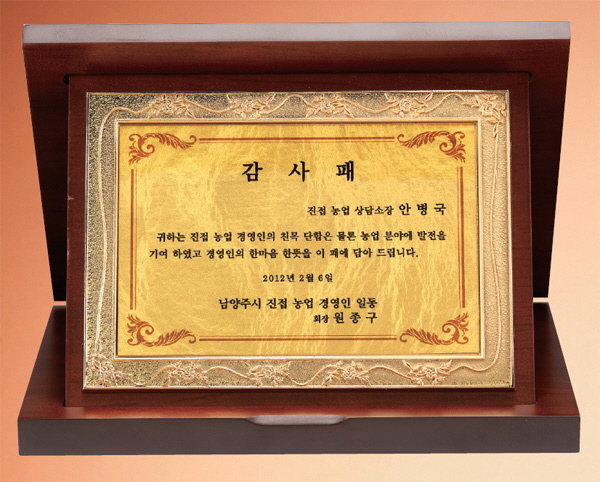 감 사 패
진접 농업 상담소장 안 병 국
귀하는 진접 농업 경영인의 친목 단합은 물론 농업 분야에 발전을
기여 하였고 경영인의 한마음 한뜻을 이 패에 담아 드립니다.
2012년 2월 6일
남양주시 진접 농업 경영인 일동
회장 원 종 구